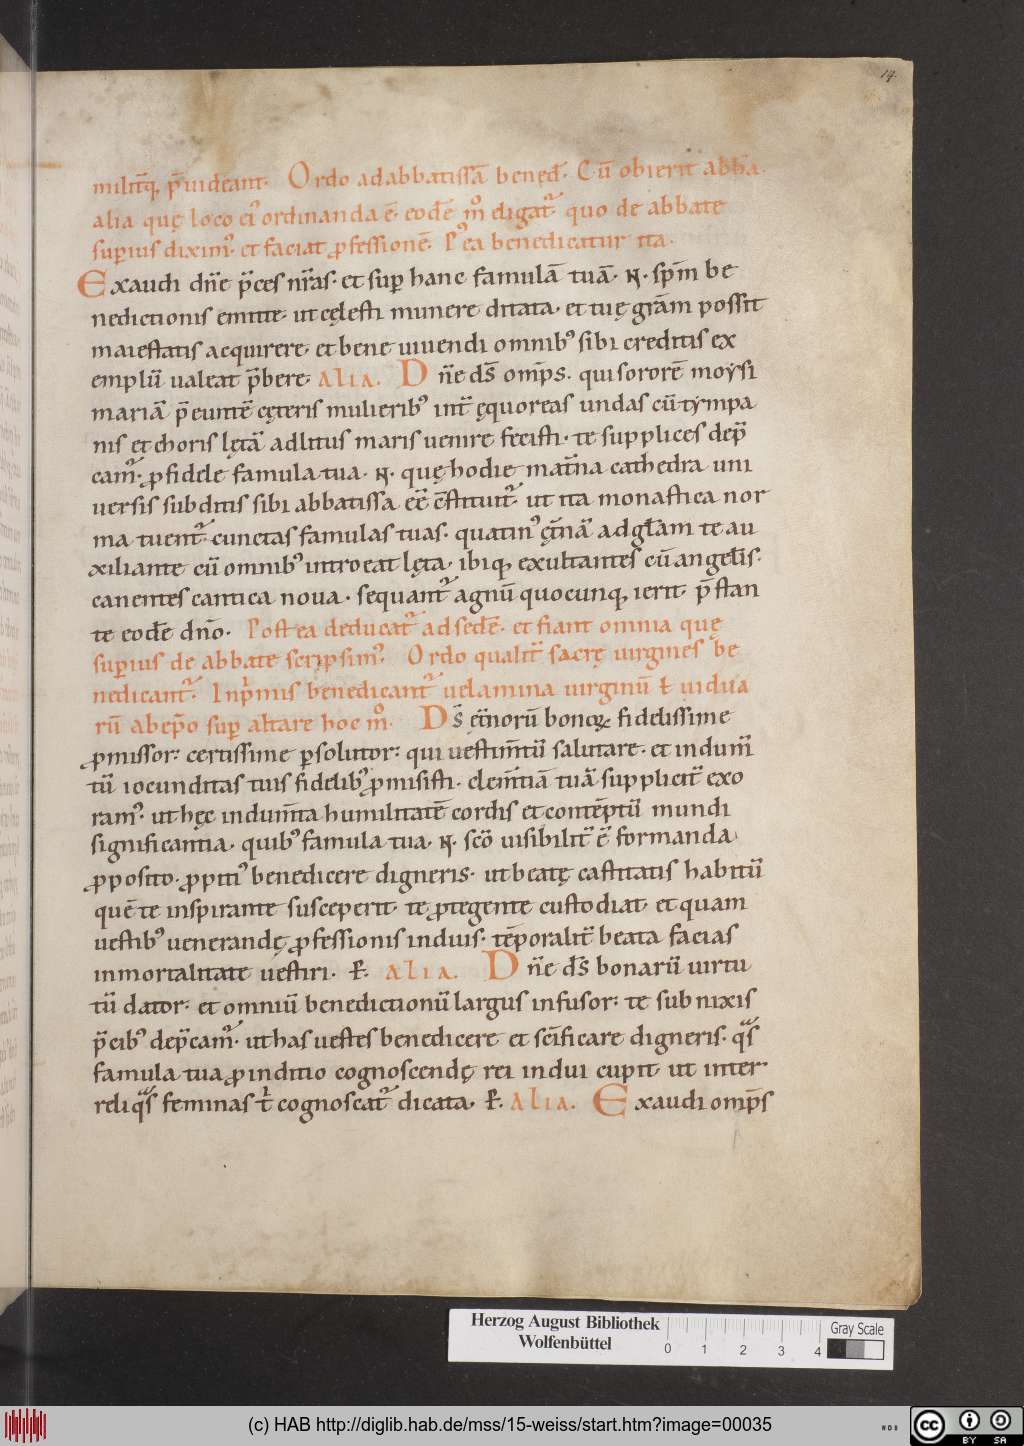 14
milit̄q, p̄uideant. Ordo ad abbatissā bened̄. Cū obierit abb̄a.
alia quę loco ei᾽ ordinanda ē. eodē m̊ eligat᷑ quo de abbate
sup̱ius dixim᾽. et faciat ꝓfessionē. P᾽ea benedicatur ita.
Exaudi dn̄e p̄ces nr̄as. et sup̱ hanc famulā tuā. N. sp̄m be
nedictionis emitte. ut cęlesti munere ditata. et tuę grām possit
maiestatis acquirere. et bene uiuendi omnib᾽ sibi creditis ex
emplū ualeat p̄bere. ALIA. Dn̄e ds̄ omp̄s. qui sororē moẏsi
mariā p̄euntē cęteris mulierib᾽ int̄ ęquoreas undas cū tẏmpa
nis et choris lętā ad litus maris uenire fecisti. te supplices dep̄
cam᾽. ꝓ fidele famula tua. N. quę hodie mat̄na cathedra uni
uersis subditis sibi abbatissa eē c̄stituit᷑. ut ita monastica nor
ma tueat᷑ cunctas famulas tuas. quatin᾽ ęt̄nā ad gl̄am te au
xiliante cū omnib᾽ introeat lęta. ibiq, exultantes cū angel̄is.
canentes cantica noua. sequant᷑ agnū quocunq, ierit. p̄stan
te eodē dn̄o. Postea deducat᷑ ad sedē. et fiant omnia quę
sup̱ius de abbate scripsim᾽. Ordo qualit̄ sacrę uirgines be
nedicant᷑. Inp̄mis benedicant᷑ uelamina uirginū ł uidua
rū ab ep̄o sup̱ altare hoc m̊. Ds̄ ęt̄norū bonoꝝ fidelissime
ꝓmissor. certissime p̱solutor. qui uestim̄tū salutare. et indum̄
tū iocunditas tuis fidelib᾽ ꝓmisisti. clem̄tiā tuā supplicit̄ exo
ram᾽. ut hęc indum̄ta humilitatē cordis et contēptū mundi
significantia. quib᾽ famula tua. N. scō uisibilit̄ ē formanda
ꝓposito. ꝓpiti᾽ benedicere digneris. ut beatę castitatis habitū
quē te inspirante susceperit. te ꝓtegente custodiat. et quam
uestib᾽ uenerandę ꝓfessionis induis. tēporalit̄ beata facias
inmortalitate uestiri. P̱. ALIA. Dn̄e ds̄ bonarū uirtu
tū dator. et omniū benedictionū largus infusor. te subnixis
p̄cib᾽ dep̄cam᾽. ut has uestes benedicere et scīficare digneris. qͣs
famula tua ꝓ inditio cognoscendę rei indui cupit. ut inter
reliqͣs feminas t̄ cognoscat᷑ dicata. P̱. ALIA. Exaudi omp̄s
Herzog August Bibliothek
Wolfenbüttel
Gray Scale
0 1 2 3 4
(c) HAB http://diglib.hab.de/mss/15-weiss/start.htm?image=00035
WDB
cc BY SA